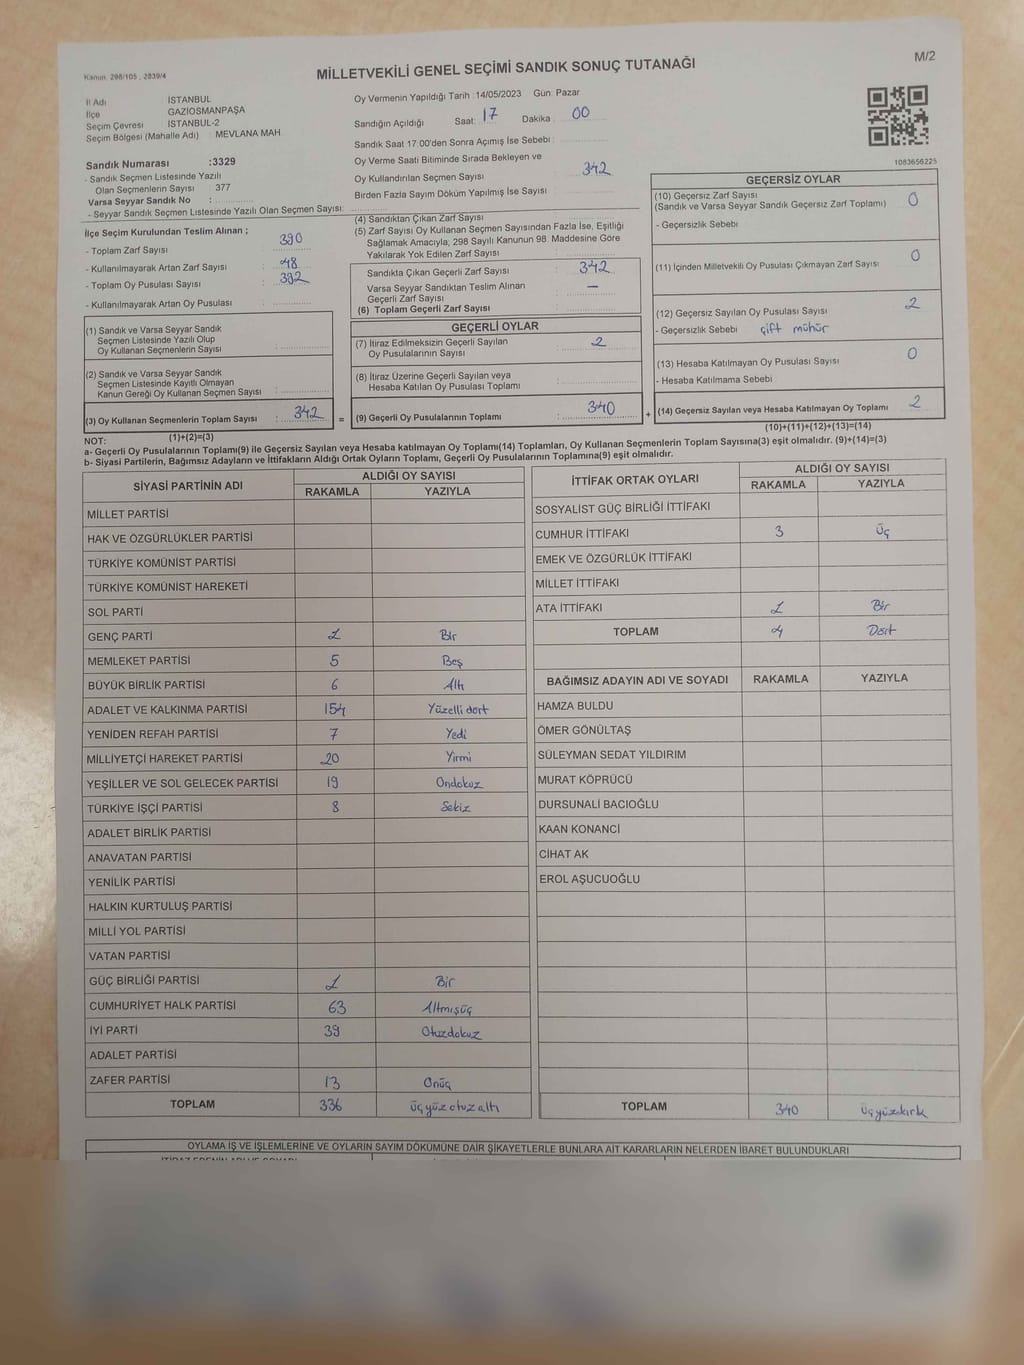 Kanun. 298/105 , 2839/4
MİLLETVEKİLİ GENEL SEÇİMİ SANDIK SONUÇ TUTANAĞI
M/2
İl Adı İSTANBUL
İlçe GAZİOSMANPAŞA
Seçim Çevresi İSTANBUL-2
Seçim Bölgesi (Mahalle Adı) : MEVLANA MAH.
Sandık Numarası :3329
- Sandık Seçmen Listesinde Yazılı
Olan Seçmenlerin Sayısı : 377
Varsa Seyyar Sandık No :
- Seyyar Sandık Seçmen Listesinde Yazılı Olan Seçmen Sayısı:
Oy Vermenin Yapıldığı Tarih :14/05/2023 Gün: Pazar
Sandığın Açıldığı Saat: 17 Dakika : 00
Sandık Saat 17:00'den Sonra Açımış İse Sebebi :
Oy Verme Saati Bitiminde Sırada Bekleyen ve
Oy Kullandırılan Seçmen Sayısı : 342
Birden Fazla Sayım Döküm Yapılmış İse Sayısı :
1083656225
İlçe Seçim Kurulundan Teslim Alınan ;
- Toplam Zarf Sayısı : 390
- Kullanılmayarak Artan Zarf Sayısı : 48
- Toplam Oy Pusulası Sayısı : 392
- Kullanılmayarak Artan Oy Pusulası :
(1) Sandık ve Varsa Seyyar Sandık
Seçmen Listesinde Yazılı Olup
Oy Kullanan Seçmenlerin Sayısı :
(2) Sandık ve Varsa Seyyar Sandık
Seçmen Listesinde Kayıtlı Olmayan
Kanun Gereği Oy Kullanan Seçmen Sayısı :
(3) Oy Kullanan Seçmenlerin Toplam Sayısı : 342 =
(1)+(2)=(3)
(4) Sandıktan Çıkan Zarf Sayısı :
(5) Zarf Sayısı Oy Kullanan Seçmen Sayısından Fazla İse, Eşitliği
Sağlamak Amacıyla, 298 Sayılı Kanunun 98. Maddesine Göre
Yakılarak Yok Edilen Zarf Sayısı :
Sandıkta Çıkan Geçerli Zarf Sayısı : 342
Varsa Seyyar Sandıktan Teslim Alınan
Geçerli Zarf Sayısı : —
(6) Toplam Geçerli Zarf Sayısı :
GEÇERLİ OYLAR
(7) İtiraz Edilmeksizin Geçerli Sayılan
Oy Pusulalarının Sayısı : 2
(8) İtiraz Üzerine Geçerli Sayılan veya
Hesaba Katılan Oy Pusulası Toplamı :
(9) Geçerli Oy Pusulalarının Toplamı : 340 +
GEÇERSİZ OYLAR
(10) Geçersiz Zarf Sayısı
(Sandık ve Varsa Seyyar Sandık Geçersiz Zarf Toplamı) 0
- Geçersizlik Sebebi
(11) İçinden Milletvekili Oy Pusulası Çıkmayan Zarf Sayısı 0
(12) Geçersiz Sayılan Oy Pusulası Sayısı 2
- Geçersizlik Sebebi çift mühür
(13) Hesaba Katılmayan Oy Pusulası Sayısı 0
- Hesaba Katılmama Sebebi
(14) Geçersiz Sayılan veya Hesaba Katılmayan Oy Toplamı 2
(10)+(11)+(12)+(13)=(14)
NOT:
a- Geçerli Oy Pusulalarının Toplamı(9) ile Geçersiz Sayılan veya Hesaba katılmayan Oy Toplamı(14) Toplamları, Oy Kullanan Seçmenlerin Toplam Sayısına(3) eşit olmalıdır. (9)+(14)=(3)
b- Siyasi Partilerin, Bağımsız Adayların ve İttifakların Aldığı Ortak Oyların Toplamı, Geçerli Oy Pusulalarının Toplamına(9) eşit olmalıdır.
SİYASİ PARTİNİN ADI ALDIĞI OY SAYISI
RAKAMLA YAZIYLA
MİLLET PARTİSİ
HAK VE ÖZGÜRLÜKLER PARTİSİ
TÜRKİYE KOMÜNİST PARTİSİ
TÜRKİYE KOMÜNİST HAREKETİ
SOL PARTİ
GENÇ PARTİ 1 Bir
MEMLEKET PARTİSİ 5 Beş
BÜYÜK BİRLİK PARTİSİ 6 Altı
ADALET VE KALKINMA PARTİSİ 154 Yüzelli dort
YENİDEN REFAH PARTİSİ 7 Yedi
MİLLİYETÇİ HAREKET PARTİSİ 20 Yirmi
YEŞİLLER VE SOL GELECEK PARTİSİ 19 Ondokuz
TÜRKİYE İŞÇİ PARTİSİ 8 Sekiz
ADALET BİRLİK PARTİSİ
ANAVATAN PARTİSİ
YENİLİK PARTİSİ
HALKIN KURTULUŞ PARTİSİ
MİLLİ YOL PARTİSİ
VATAN PARTİSİ
GÜÇ BİRLİĞİ PARTİSİ 1 Bir
CUMHURİYET HALK PARTİSİ 63 Altmışüç
İYİ PARTİ 39 Otuzdokuz
ADALET PARTİSİ
ZAFER PARTİSİ 13 Onüç
TOPLAM 336 üçyüz otuz altı
İTTİFAK ORTAK OYLARI ALDIĞI OY SAYISI
RAKAMLA YAZIYLA
SOSYALİST GÜÇ BİRLİĞİ İTTİFAKI
CUMHUR İTTİFAKI 3 Üç
EMEK VE ÖZGÜRLÜK İTTİFAKI
MİLLET İTTİFAKI
ATA İTTİFAKI 1 Bir
TOPLAM 4 Dört
BAĞIMSIZ ADAYIN ADI VE SOYADI RAKAMLA YAZIYLA
HAMZA BULDU
ÖMER GÖNÜLTAŞ
SÜLEYMAN SEDAT YILDIRIM
MURAT KÖPRÜCÜ
DURSUNALİ BACIOĞLU
KAAN KONANCİ
CİHAT AK
EROL AŞUCUOĞLU
TOPLAM 340 üçyüzkırk
OYLAMA İŞ VE İŞLEMLERİNE VE OYLARIN SAYIM DÖKÜMÜNE DAİR ŞİKAYETLERLE BUNLARA AİT KARARLARIN NELERDEN İBARET BULUNDUKLARI